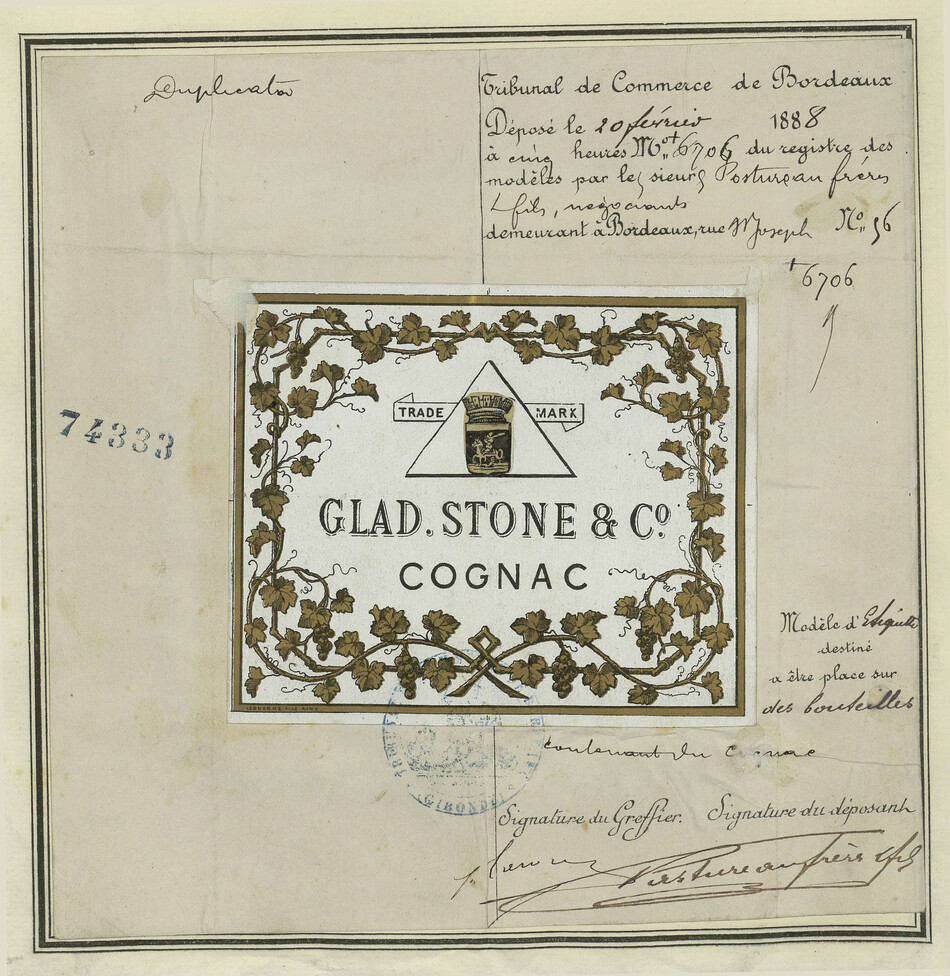 Duplicata
Tribunal de Commerce de Bordeaux
Déposé le 20 février 1888
à cinq heures N° 6706 du registre des
modèles par les sieurs Pastureau frères
& fils, négociants
demeurant à Bordeaux, rue St Joseph N° 56
6706
74333
TRADE MARK
GLAD. STONE & Co.
COGNAC
Modèle d'Etiquette
destiné
a être place sur
des bouteilles
contenant du cognac
GIRONDE
Signature du Greffier. Signature du déposant
Pastureau frères & fils